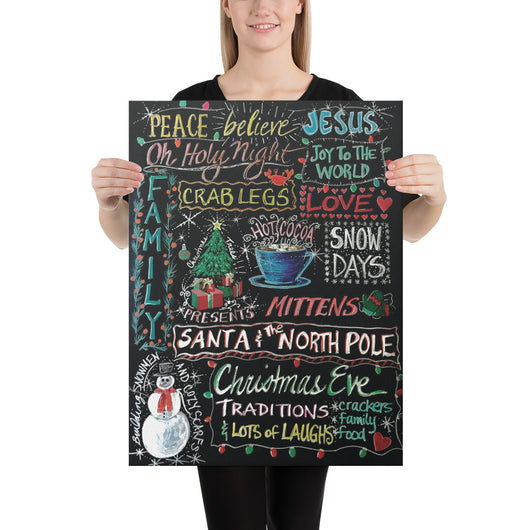 PEACE believe JESUS
Oh Holy Night
JOY TO THE
WORLD
FAMILY
CRAB LEGS
LOVE
Christmas Trees
HOT COCOA
SNOW
DAYS
PRESENTS
MITTENS
SANTA & The NORTH POLE
BUILDING SNOWMEN
AND COZY SCARFS
Christmas Eve
TRADITIONS
& LOTS of LAUGHS
crackers
family
food